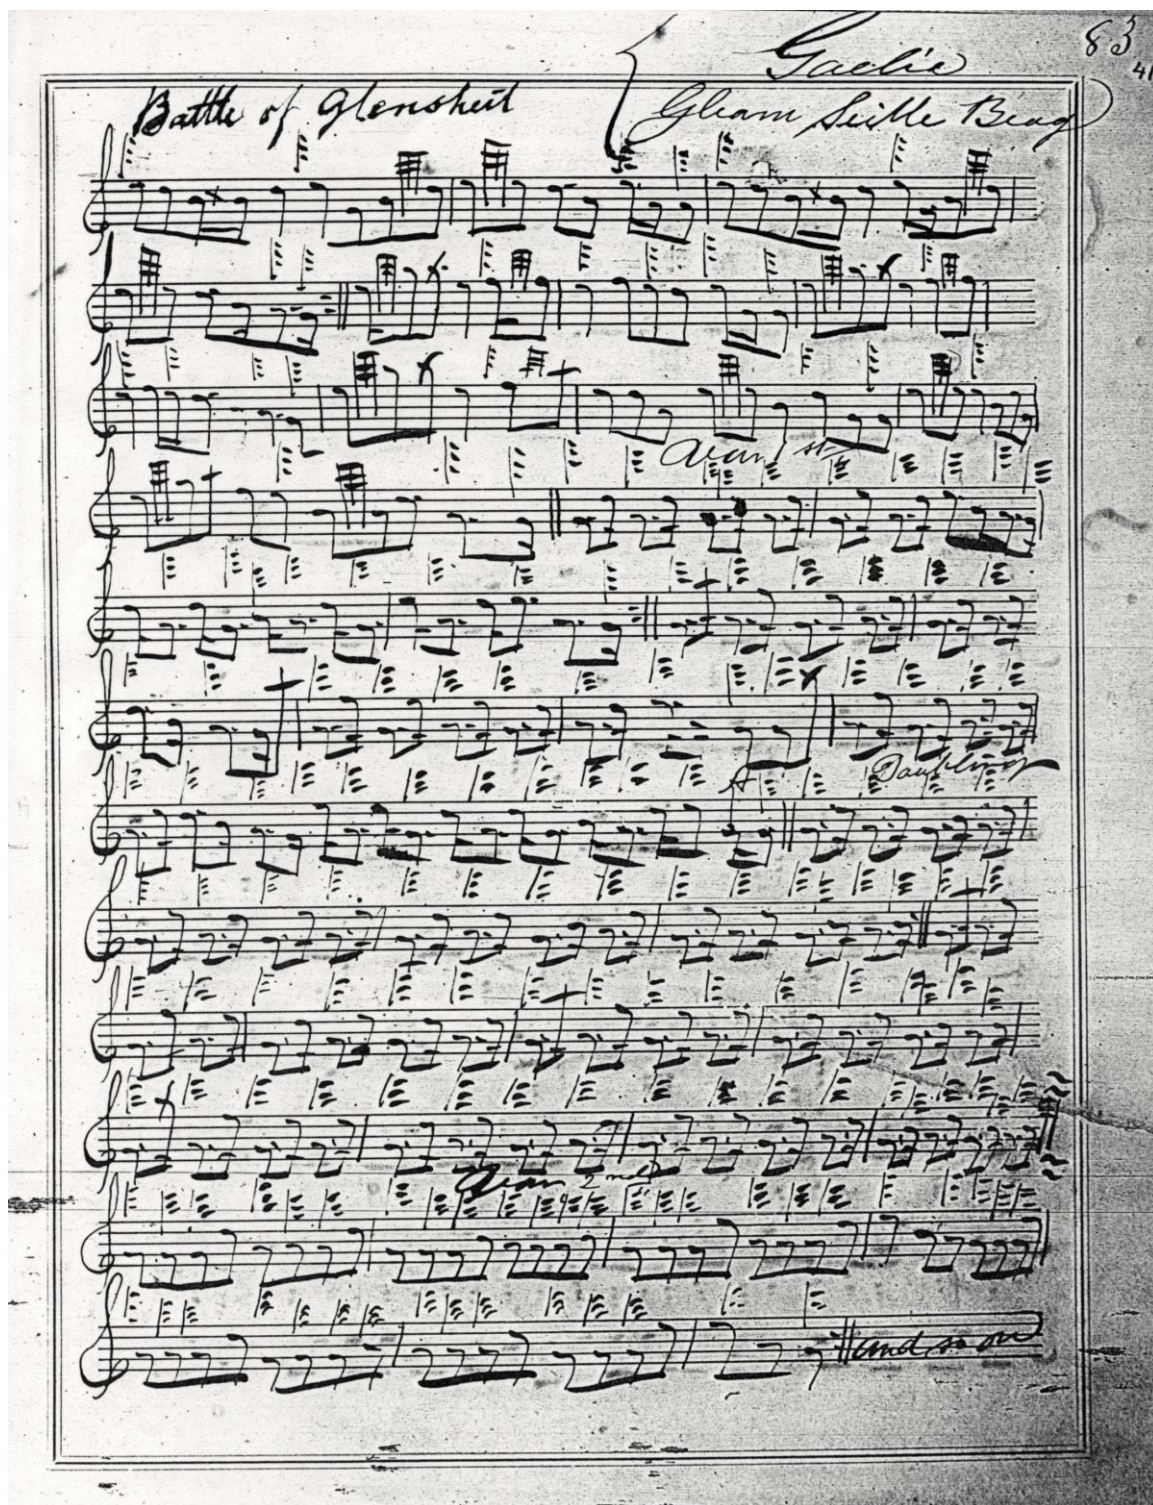 83
41
Gaelic
Battle of Glensheil
Gleann Seille Beag
Var 1st
Doubling
Var 2nd
and so on